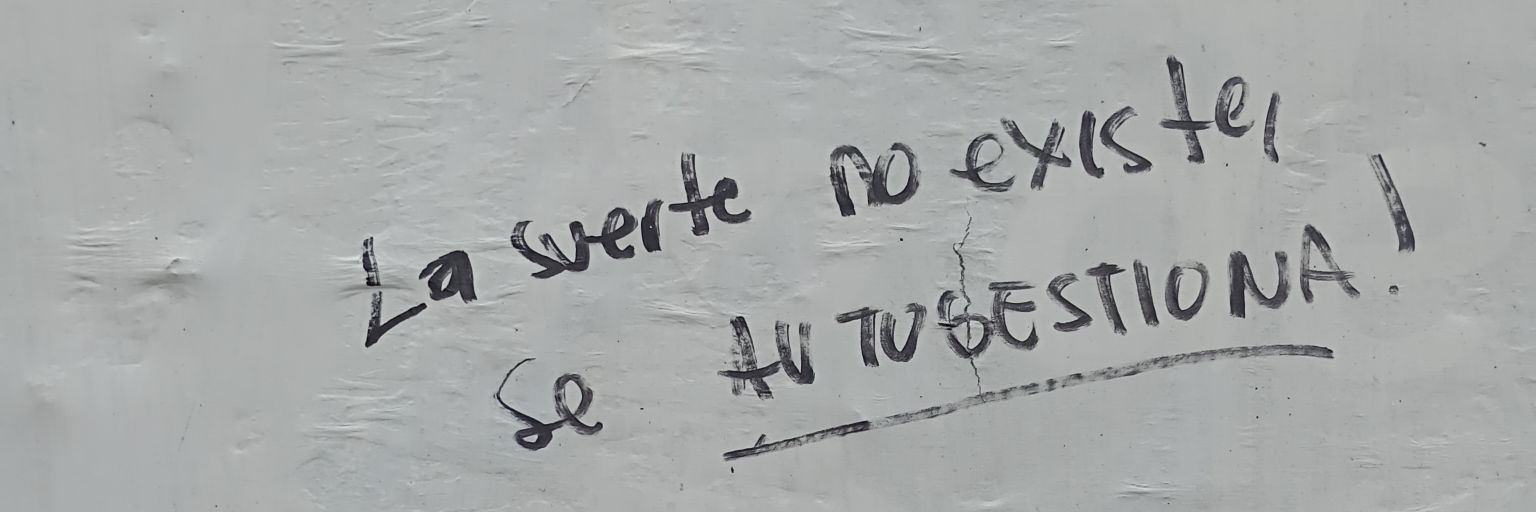 La suerte no existe,
se AUTOGESTIONA!